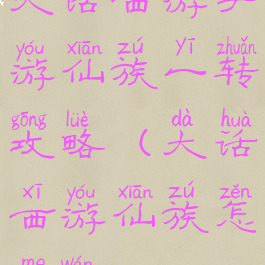 大话西游手
yóu xiān zú yī zhuǎn
游仙族一转
gōng lüè dà huà
攻略（大话
xī yóu xiān zú zěn
西游仙族怎
me wán